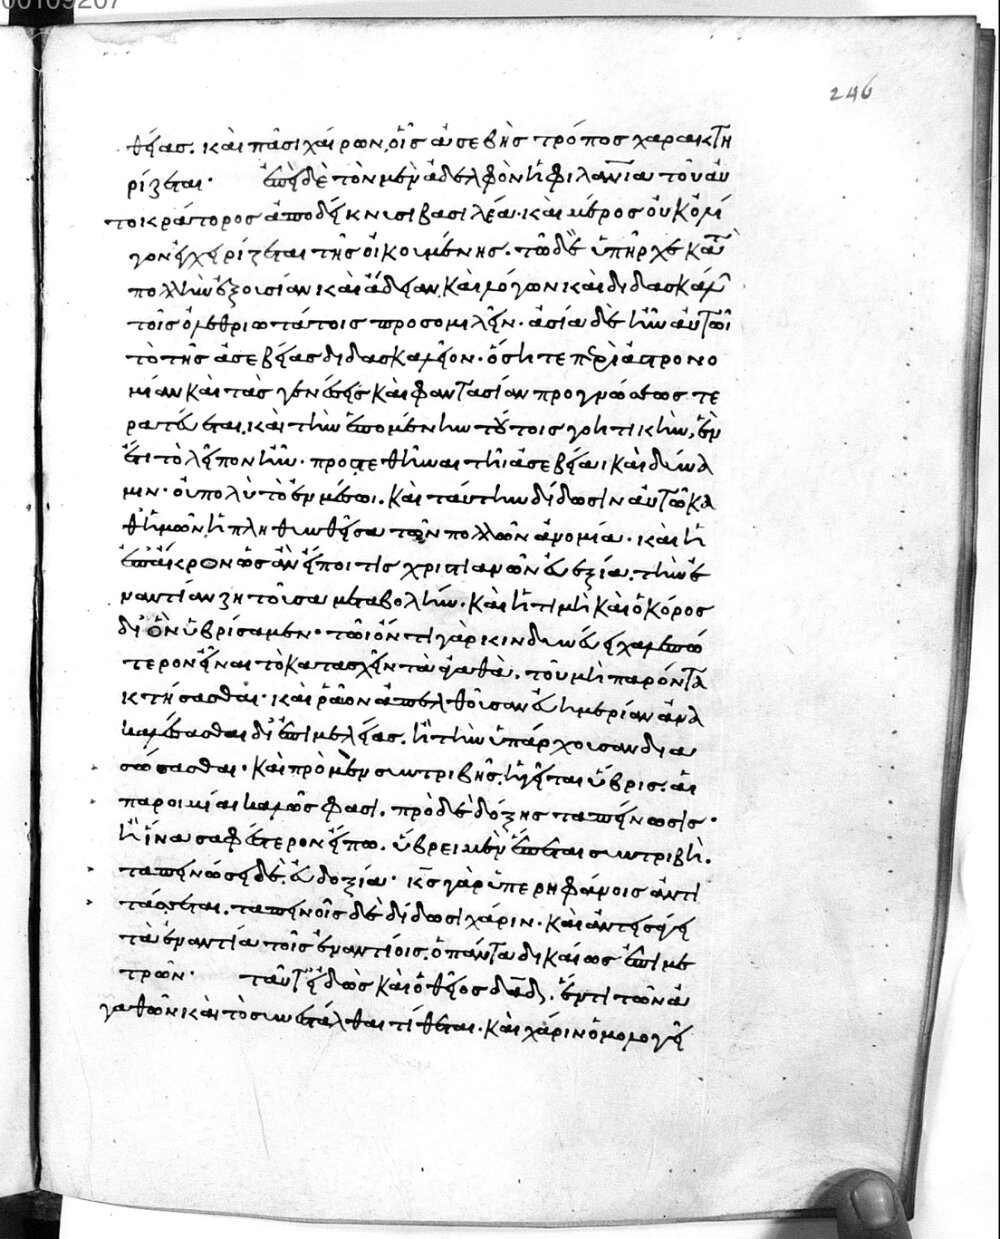 00109207
246
θείας. καὶ πᾶσι χαίρων, οἷς ἀσεβὴς τρόπος χαρακτη
ρίζεται. ἐπεὶ δὲ τὸν μὲν ἀδελφὸν ἡ φιλανία τοῦ αὐ
τοκράτορος ἀποδείκνυσι βασιλέα. καὶ μέρος οὐκ ὀλί
γον ἐγχειρίζεται τῆς οἰκουμένης. τῶ δὲ ὑπῆρχε κατ
πολλὴν ἐξουσίαν καὶ ἄδειαν, καὶ λόγων καὶ διδασκάλ
τοῖς ὀλεθριωτάτοις προσομιλεῖν. ἀσία δὲ ἦν αὐτῶι
τὸ τῆς ἀσεβείας διδασκαλεῖον. ὅση τε περὶ ἀστρονο
μίαν καὶ τὰς γενέσεις καὶ φαντασίαν προγνώσεως τε
ρατεύεται, καὶ τὴν ἑπομένην τούτοις γοητικήν, ἓν
ἔτι τὸ λεῖπον ἦν. προστεθῆναι τῆι ἀσεβείαι καὶ δύνα
μιν. οὐ πολὺ τὸ ἐν μέσωι. καὶ ταύτην δίδωσιν αὐτῶ κα
θ' ἡμῶν, ἡ πληθυνθεῖσα τῶν πολλῶν ἀνομία. καὶ ἡ
ἐπ' ἄκρον ὡς ἂν εἴποι τις χριστιανῶν εὐεξία. τὴν ἐ
ναντίαν ζητοῦσα μεταβολήν. καὶ ἡ τιμὴ καὶ ὁ κόρος
δι' ὃν ὑβρίσαμεν. τῶι ὄντι γὰρ κινδυνεύει χαλεπώ
τερον εἶναι τὸ κατασχεῖν τὰ ἀγαθὰ, τοῦ μὴ παρόντα
κτήσασθαι. καὶ ῥᾶον ἀπελθοῦσαν εὐημερίαν ἀνα
καλέσασθαι δι' ἐπιμελείας. ἢ τὴν ὑπάρχουσαν δια
σώσασθαι. καὶ πρὸ μὲν συντριβῆς, ἡγεῖται ὕβρις. αἱ
παροιμίαι καλῶς φασι. πρὸ δὲ δόξης ταπείνωσις.
ἢ ἵνα σαφέστερον εἴπω. ὕβρει μὲν ἕπεται συντριβή.
ταπεινώσει δὲ, εὐδοξία. κς γὰρ ὑπερηφάνοις ἀντι
τάσσεται. ταπεινοῖς δὲ δίδωσι χάριν. καὶ ἀντεισάγει
τὰ ἐναντία τοῖς ἐναντίοις, ὁ πάντα δικαίως ἐπιμε
τρῶν. ταῦτ' εἰδὼς καὶ ὁ θεῖος δαδ. ἕν τι τῶν ἀ
γαθῶν καὶ τὸ συνεστάλθαι τίθεται. καὶ χάριν ὁμολογεῖ